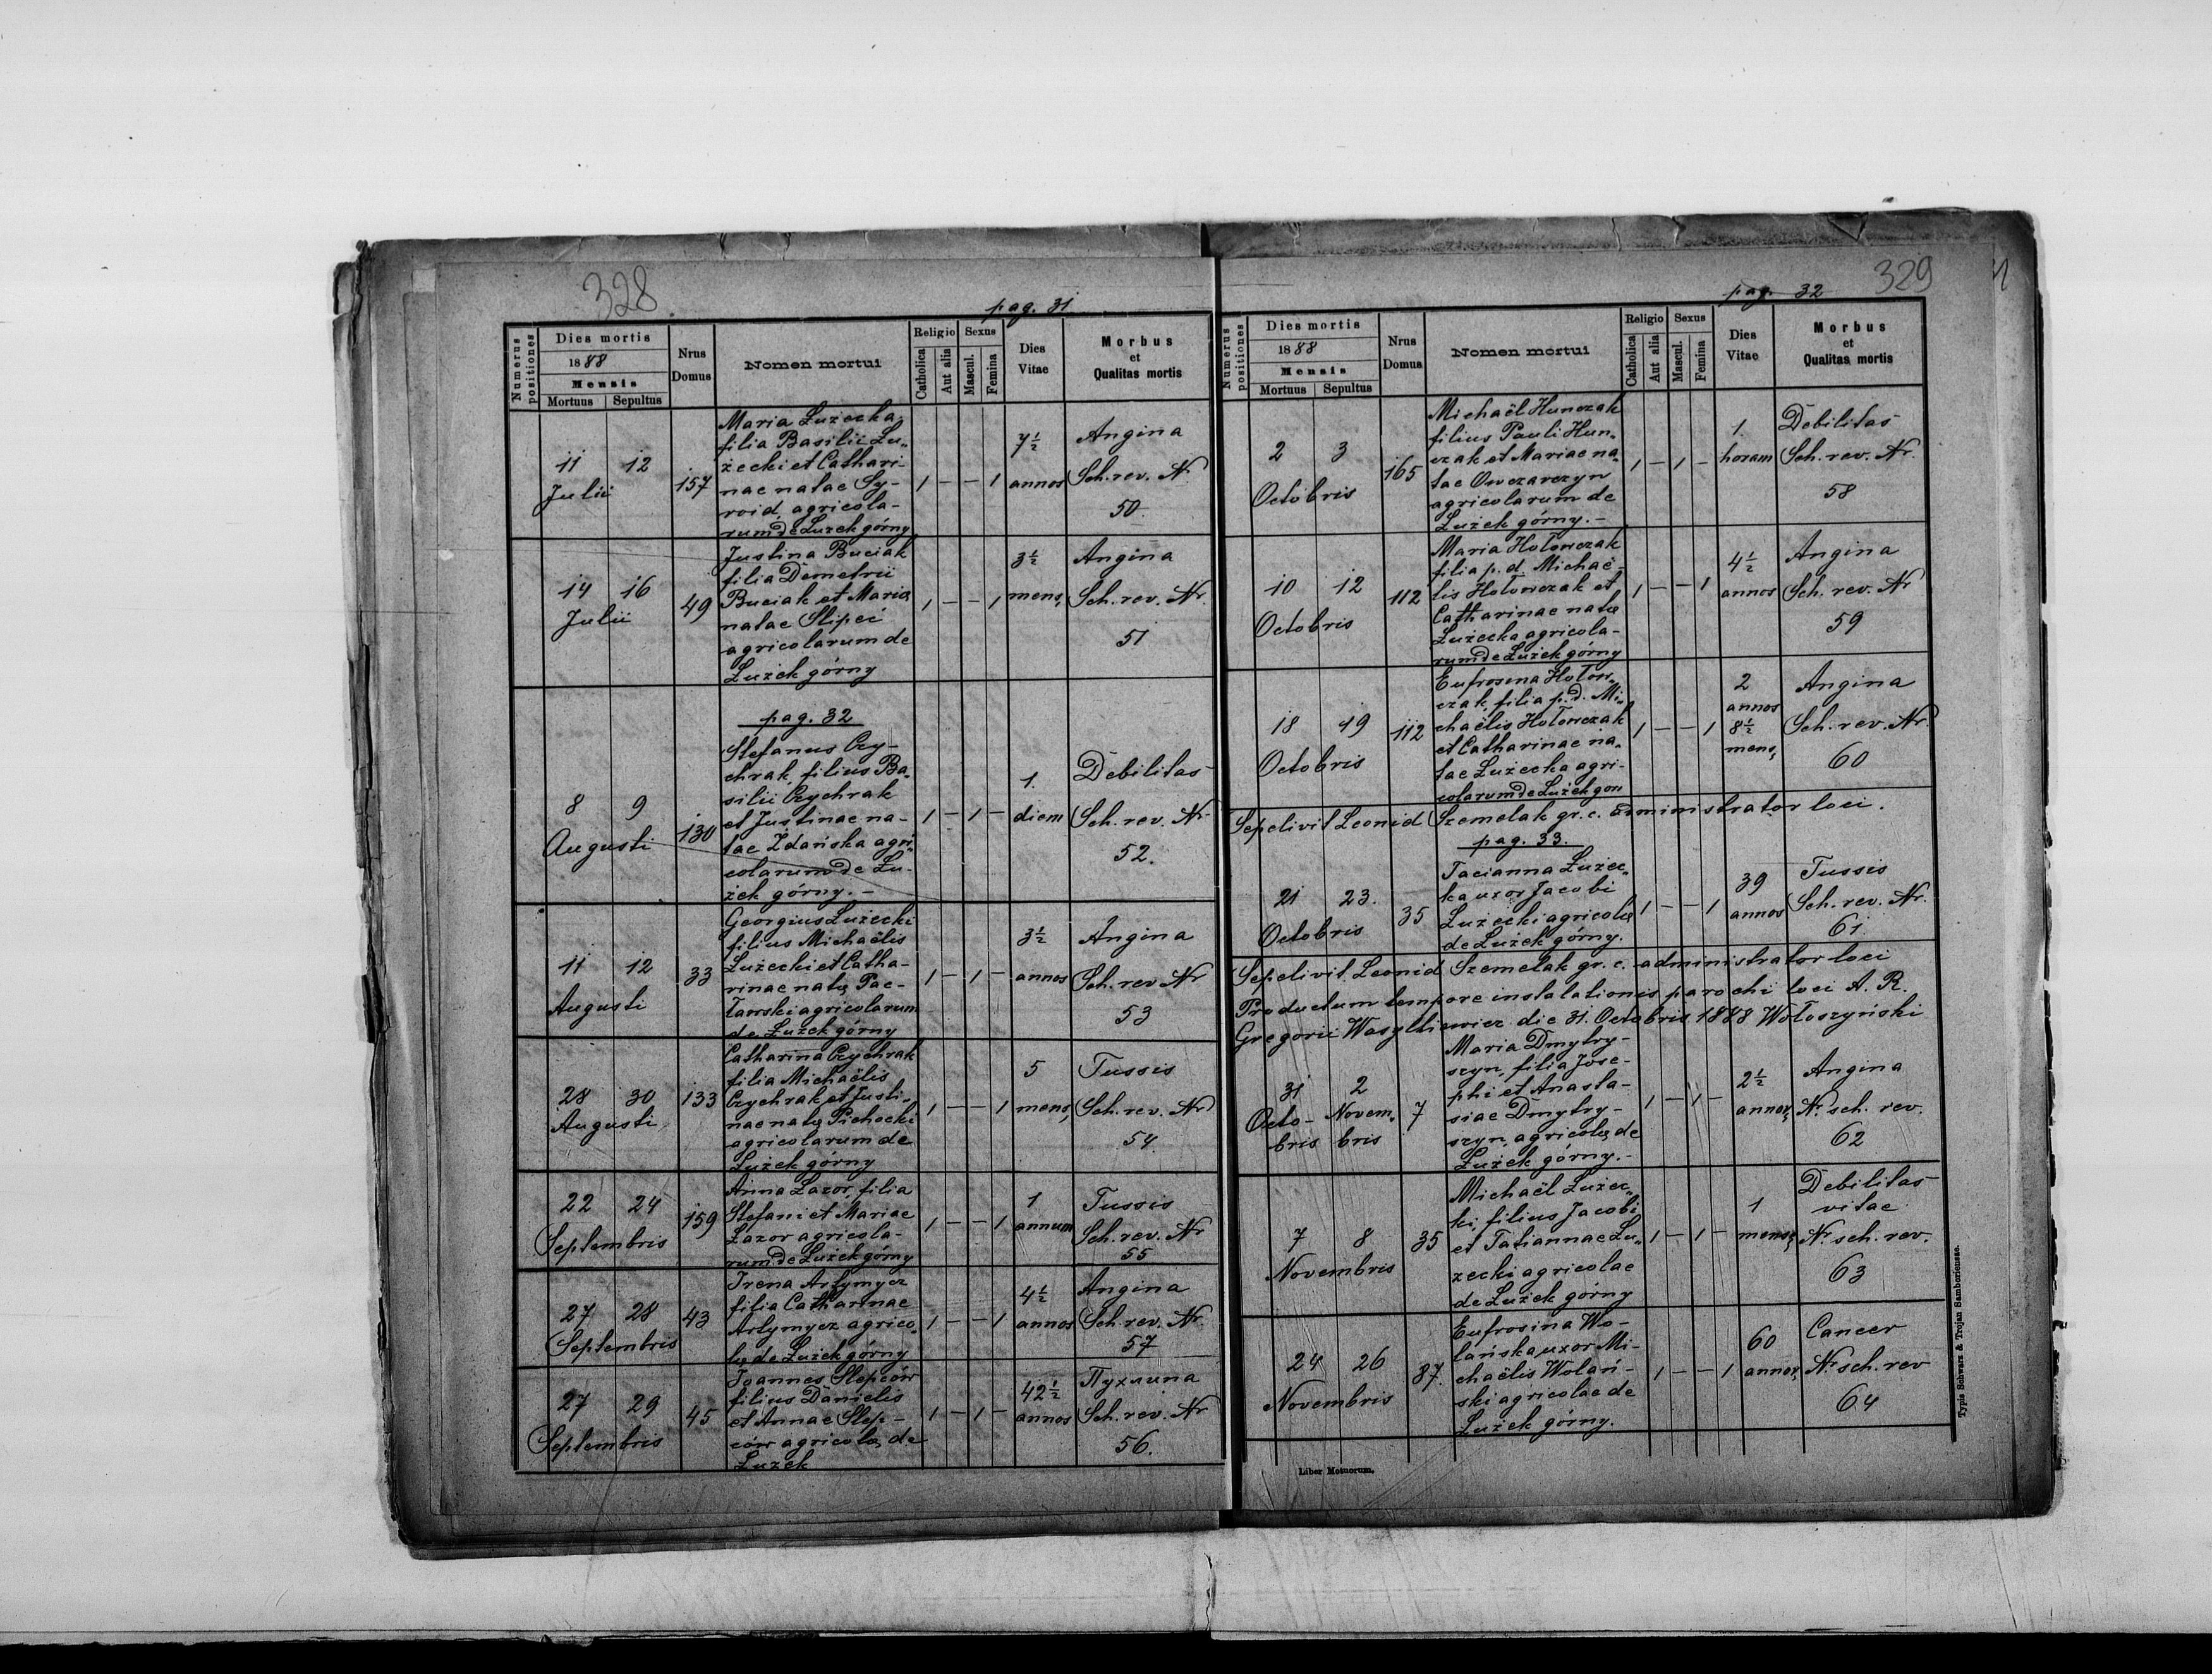 328
pag. 31
Numerus positiones
Dies mortis
1888
Mensis
Mortuus Sepultus
Nrus Domus
Nomen mortui
Religio
Catholica
Aut alia
Sexus
Mascul.
Femina
Dies Vitae
Morbus
et
Qualitas mortis
11 12
Julii
157
Maria Łużecka,
filia Basilii Łu„
żecki et Cathari-
nae natae Sy-
roid, agricola-
rum de Łużek górny
1 — — 1
7½
annos
Angina
Sch. rev. Nr
50.
14 16
Julii
49
Justina Buciak
filia Demetrii
Buciak et Maria
natae Slipei
agricolarum de
Łużek górny
1 — — 1
3½
mens,
Angina
Sch. rev. Nr.
51
pag. 32
8 9
Augusti
130
Stefanus Czy-
chrak, filius Ba„
silii Czychrak
et Justinae na-
tae Żdańska agri„
colarum de Łu-
żek górny. —
1 — 1 —
1.
diem
Debilitas
Sch. rev. Nr
52.
11 12
Augusti
33
Georgius Łużecki
filius Michaëlis
Łużecki et Catha-
rinae natę Pac-
ławski agricolarum
de Łużek górny
1 — 1 —
3½
annos
Angina
Sch. rev Nr
53
28 30
Augusti
133
Catharina Czychrak
filia Michaëlis
Czychrak et Justi„
nae natę Pichocki
agricolarum de
Łużek górny
1 — — 1
5
mens,
Tussis
Sch. rev. Nr
54.
22 24
Septembris
159
Anna Łazor, filia
Stefani et Mariae
Łazor agricola-
rum de Łużek górny
1 — — 1
1
annum
Tussis
Sch. rev. Nr
55
27 28
Septembris
43
Irena Artymycz
filia Catharinae
Artymycz agrico„
lę de Łużek górny
1 — — 1
4½
annos
Angina
Sch. rev. Nr.
57
27 29
Septembris
45
Joannes Slepców
filius Danielis
et Annae Slep-
ców agricolę de
Łużek
1 — 1 —
42½
annos
Пухлина
Sch. rev. Nr
56.
329
pag. 32
Numerus positiones
Dies mortis
1888
Mensis
Mortuus Sepultus
Nrus Domus
Nomen mortui
Religio
Catholica
Aut alia
Sexus
Mascul.
Femina
Dies Vitae
Morbus
et
Qualitas mortis
2 3
Octobris
165
Michaël Hunczak
filius Pauli Hun„
czak et Mariae na„
tae Owczarczyn
agricolarum de
Łużek górny. —
1 — 1 —
1.
horam
Debilitas
Sch. rev. Nr.
58
10 12
Octobris
112
Maria Hołowczak
filia p. d. Michaë-
lis Hołowczak et
Catharinae natę
Łużecka agricola-
rum de Łużek górny
1 — — 1
4½
annos
Angina
Sch. rev. Nr
59
18 19
Octobris
112
Eufrosina Hołow„
czak, filia p. d. Mi„
chaëlis Hołowczak
et Catharinae na„
tae Łużecka agri-
colarum de Łużek gór
1 — — 1
2
annos
8½
mens,
Angina
Sch. rev. Nr
60
Sepelivit Leonid Szemelak gr. c. administrator loci.
pag. 33.
21 23.
Octobris
35
Tacianna Łużec„
ka uxor Jacobi
Łużecki agricolę
de Łużek górny.
1 — — 1
39
annos
Tussis
Sch. rev. Nr.
61.
Sepelivit. Leonid Szemelak gr. c. administrator loci
Productum tempore instalationis parochi loci A. R.
Gregorii Wasylkiewicz die 31. Octobris 1888 Wołoszyński
31 2
Octo- Novem„
bris bris
7
Maria Dmytry-
szyn, filia Jose-
phi et Anasta-
siae Dmytry-
szyn, agricolę de
Łużek górny. —
1 — 1 —
2½
annos,
Angina
Nr. sch. rev.
62
7 8
Novembris
35
Michaël Łużec„
ki, filius Jacobi
et Tatiannae Łu„
żecki agricolae
de Łużek górny
1 — 1 —
1
mens,
Debilitas
vitae
Nr. sch. rev.
63
24 26
Novembris
87.
Eufrosina Wo-
lańska uxor Mi-
chaëlis Wolań-
ski agricolae de
Łużek górny.
1 — — 1
60
annos,
Cancer
Nr sch. rev
64
Liber Motuorum.
Typis Schwarz & Trojan Samboriensae.